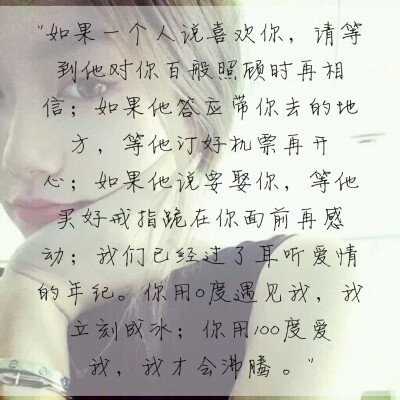 "如果一个人说喜欢你，请等
到他对你百般照顾时再相
信；如果他答应带你去的地
方，等他订好机票再开
心；如果他说要娶你，等他
买好戒指跪在你面前再感
动；我们已经过了耳听爱情
的年纪。你用0度遇见我，我
立刻成冰；你用100度爱
我，我才会沸腾。"